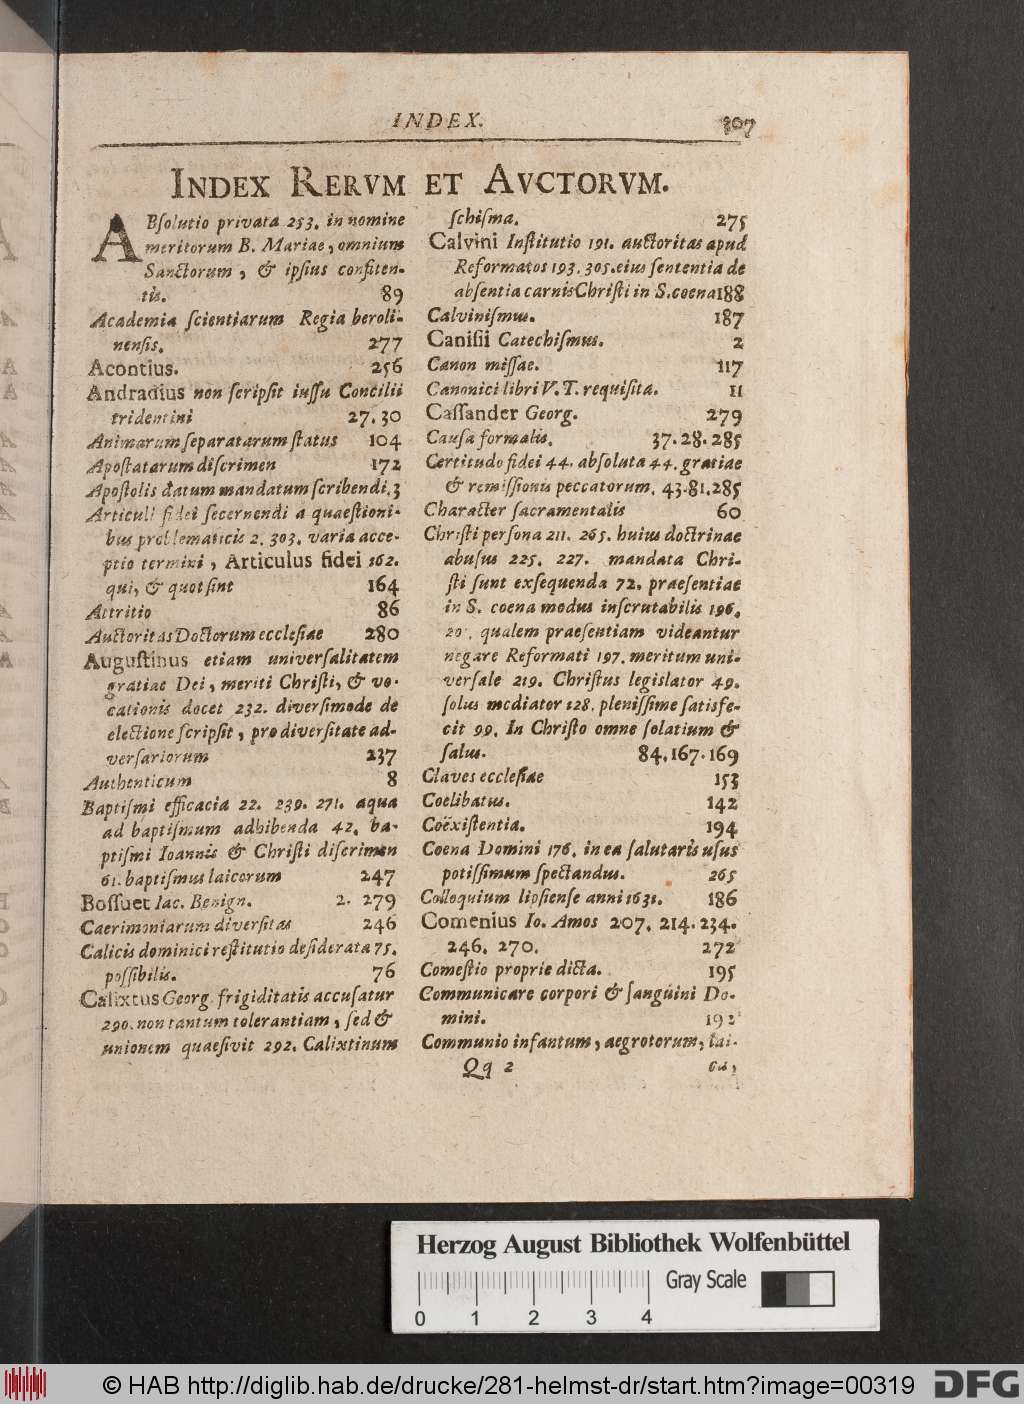 INDEX. 307
INDEX RERVM ET AVCTORVM.
ABſolutio privata 253. in nomine
meritorum B. Mariae, omnium
Sanctorum, & ipſius confiten-
tis. 89
Academia ſcientiarum Regia beroli-
nenſis. 277
Acontius. 256
Andradius non ſcripſit iuſſu Concilii
tridentini 27. 30
Animarum ſeparatarum ſtatus 104
Apoſtatarum diſcrimen 172
Apoſtolis datum mandatum ſcribendi. 3
Articuli fidei ſecernendi a quaeſtioni-
bus problematicis 2. 303. varia acce-
ptio termini, Articulus fidei 162.
qui, & quot ſint 164
Attritio 86
Auctoritas Doctorum eccleſiae 280
Auguſtinus etiam univerſalitatem
gratiae Dei, meriti Chriſti, & vo-
cationis docet 232. diverſimode de
electione ſcripſit, pro diverſitate ad-
verſariorum 237
Authenticum 8
Baptiſmi efficacia 22. 239. 271. aqua
ad baptiſmum adhibenda 42. ba-
ptiſmi Ioannis & Chriſti diſcrimen
61. baptiſmus laicorum 247
Boſſuet Iac. Benign. 2. 279
Caerimoniarum diverſitas 246
Calicis dominici reſtitutio deſiderata 75.
poſſibilis. 76
Calixtus Georg. frigiditatis accuſatur
290. non tantum tolerantiam, ſed &
unionem quaeſivit 292. Calixtinum
ſchiſma. 275
Calvini Inſtitutio 191. auctoritas apud
Reformatos 193. 305. eius ſententia de
abſentia carnis Chriſti in S. coena 188
Calviniſmus. 187
Caniſii Catechiſmus. 2
Canon miſſae. 117
Canonici libri V. T. requiſita. 11
Caſſander Georg. 279
Cauſa formalis. 37. 28. 285
Certitudo fidei 44. abſoluta 44. gratiae
& remiſſionis peccatorum. 43. 81. 285
Character ſacramentalis 60
Chriſti perſona 211. 265. huius doctrinae
abuſus 225. 227. mandata Chri-
ſti ſunt exſequenda 72. praeſentiae
in S. coena modus inſcrutabilis 196.
qualem praeſentiam videantur
negare Reformati 197. meritum uni-
verſale 219. Chriſtus legislator 49.
ſolus mediator 128. pleniſſime ſatisfe-
cit 99. In Chriſto omne ſolatium &
ſalus. 84. 167. 169
Claves eccleſiae 153
Coelibatus. 142
Coëxiſtentia. 194
Coena Domini 176. in ea ſalutaris uſus
potiſſimum ſpectandus. 265
Colloquium lipſienſe anni 1631. 186
Comenius Io. Amos 207. 214. 234.
246. 270. 272
Comeſtio proprie dicta. 195
Communicare corpori & ſangúini Do-
mini. 192
Communio infantum, aegrotorum, lai-
Qq 2 cis,
Herzog August Bibliothek Wolfenbüttel
Gray Scale
0 1 2 3 4
© HAB http://diglib.hab.de/drucke/281-helmst-dr/start.htm?image=00319
DFG